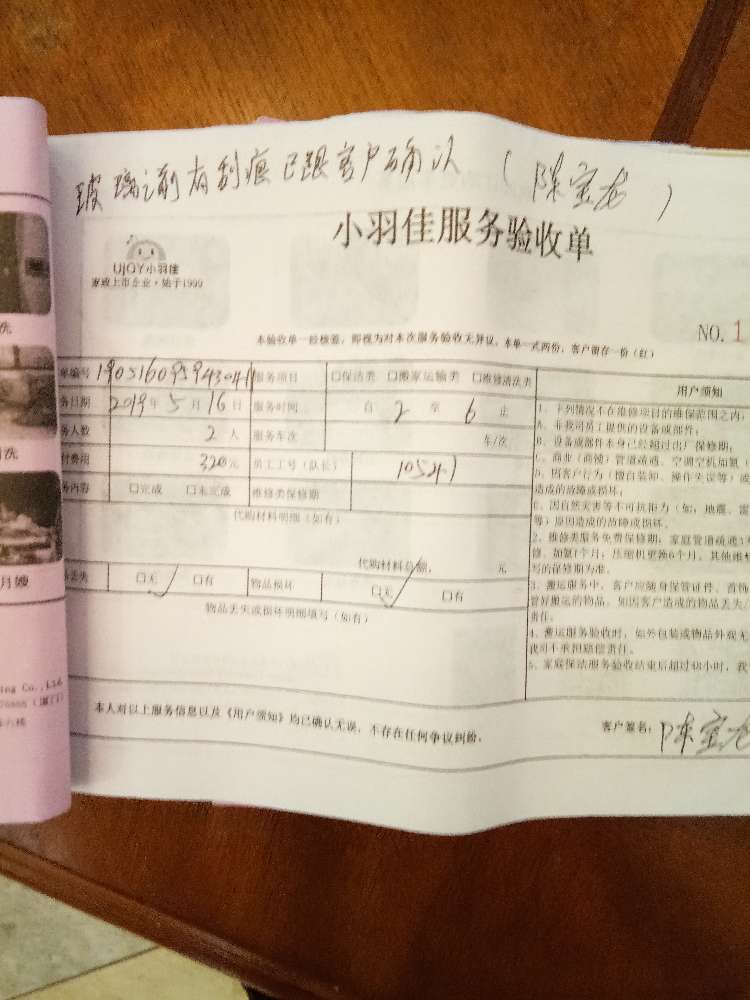 玻璃之前有刮痕已跟客户确次(陈宝龙)
小羽佳服务验收单
UJOY小羽佳
家政上市企业·始于1999
本验收单一经核签,即视为对本次服务验收无异议,本单一式两份,客户留存一份(红)
NO.1
单编号 服务项目 口保洁类 口搬家运输类 口维修清洗类
务日期 2019年5月16日 服务时间 自2至6止
务人数 2人 服务车次 车/次
付费用 320元 员工工号(队长) 10541
务内容 口完成 口未完成 维修类保修期
代购材料明细(如有)
代购材料总额, 元
丢失 口无 口有 物品损坏 口无 口有
物品丢失或损坏明细填写(如有)
本人对以上服务信息以及《用户须知》均已确认无误,不存在任何争议纠纷。
客户签名:陈宝龙
用户须知
1、下列情况不在维修项目的维保范围之内:
A、非我司员工提供的设备或部件;
B、设备或部件本身已经超过出厂保修期;
C、商业(商铺)管道疏通、空调空机加氟(
D、因客户行为(擅自装卸、操作失误等)或
造成的故障或损坏;
E、因自然灾害等不可抗拒为(如:地震、雷
等)原因造成的故障或损坏。
2、维修类服务免费保修期:家庭管道疏通1
修、加氟1个月;压缩机更换6个月。其他维
写的保修期为准。
3、搬运服务中,客户应随身保管证件、首饰
管好搬运的物品。如因客户造成的物品丢失/
责任。
4、搬运服务验收时,如外包装或物品外观无
我司不承担赔偿责任。
5、家庭保洁服务验收结束后超过48小时,我
洗
洗
月嫂
ing Co.,Ltd